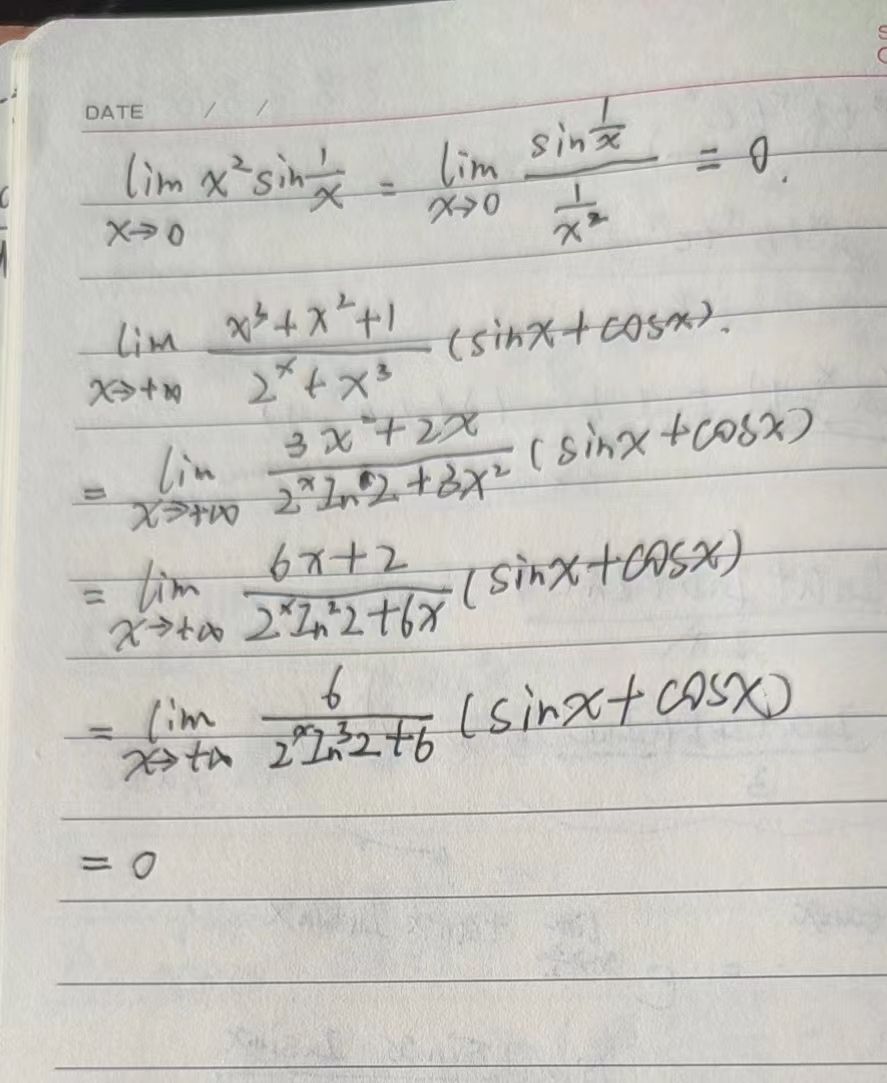 DATE / /
lim x→0 x² sin 1/x = lim x→0 (sin 1/x)/(1/x²) = 0.
lim x→+∞ (x³+x²+1)/(2ˣ+x³) (sinx+cosx).
= lim x→+∞ (3x²+2x)/(2ˣln2+3x²) (sinx+cosx)
= lim x→+∞ (6x+2)/(2ˣln²2+6x) (sinx+cosx)
= lim x→+∞ 6/(2ˣln³2+6) (sinx+cosx)
= 0